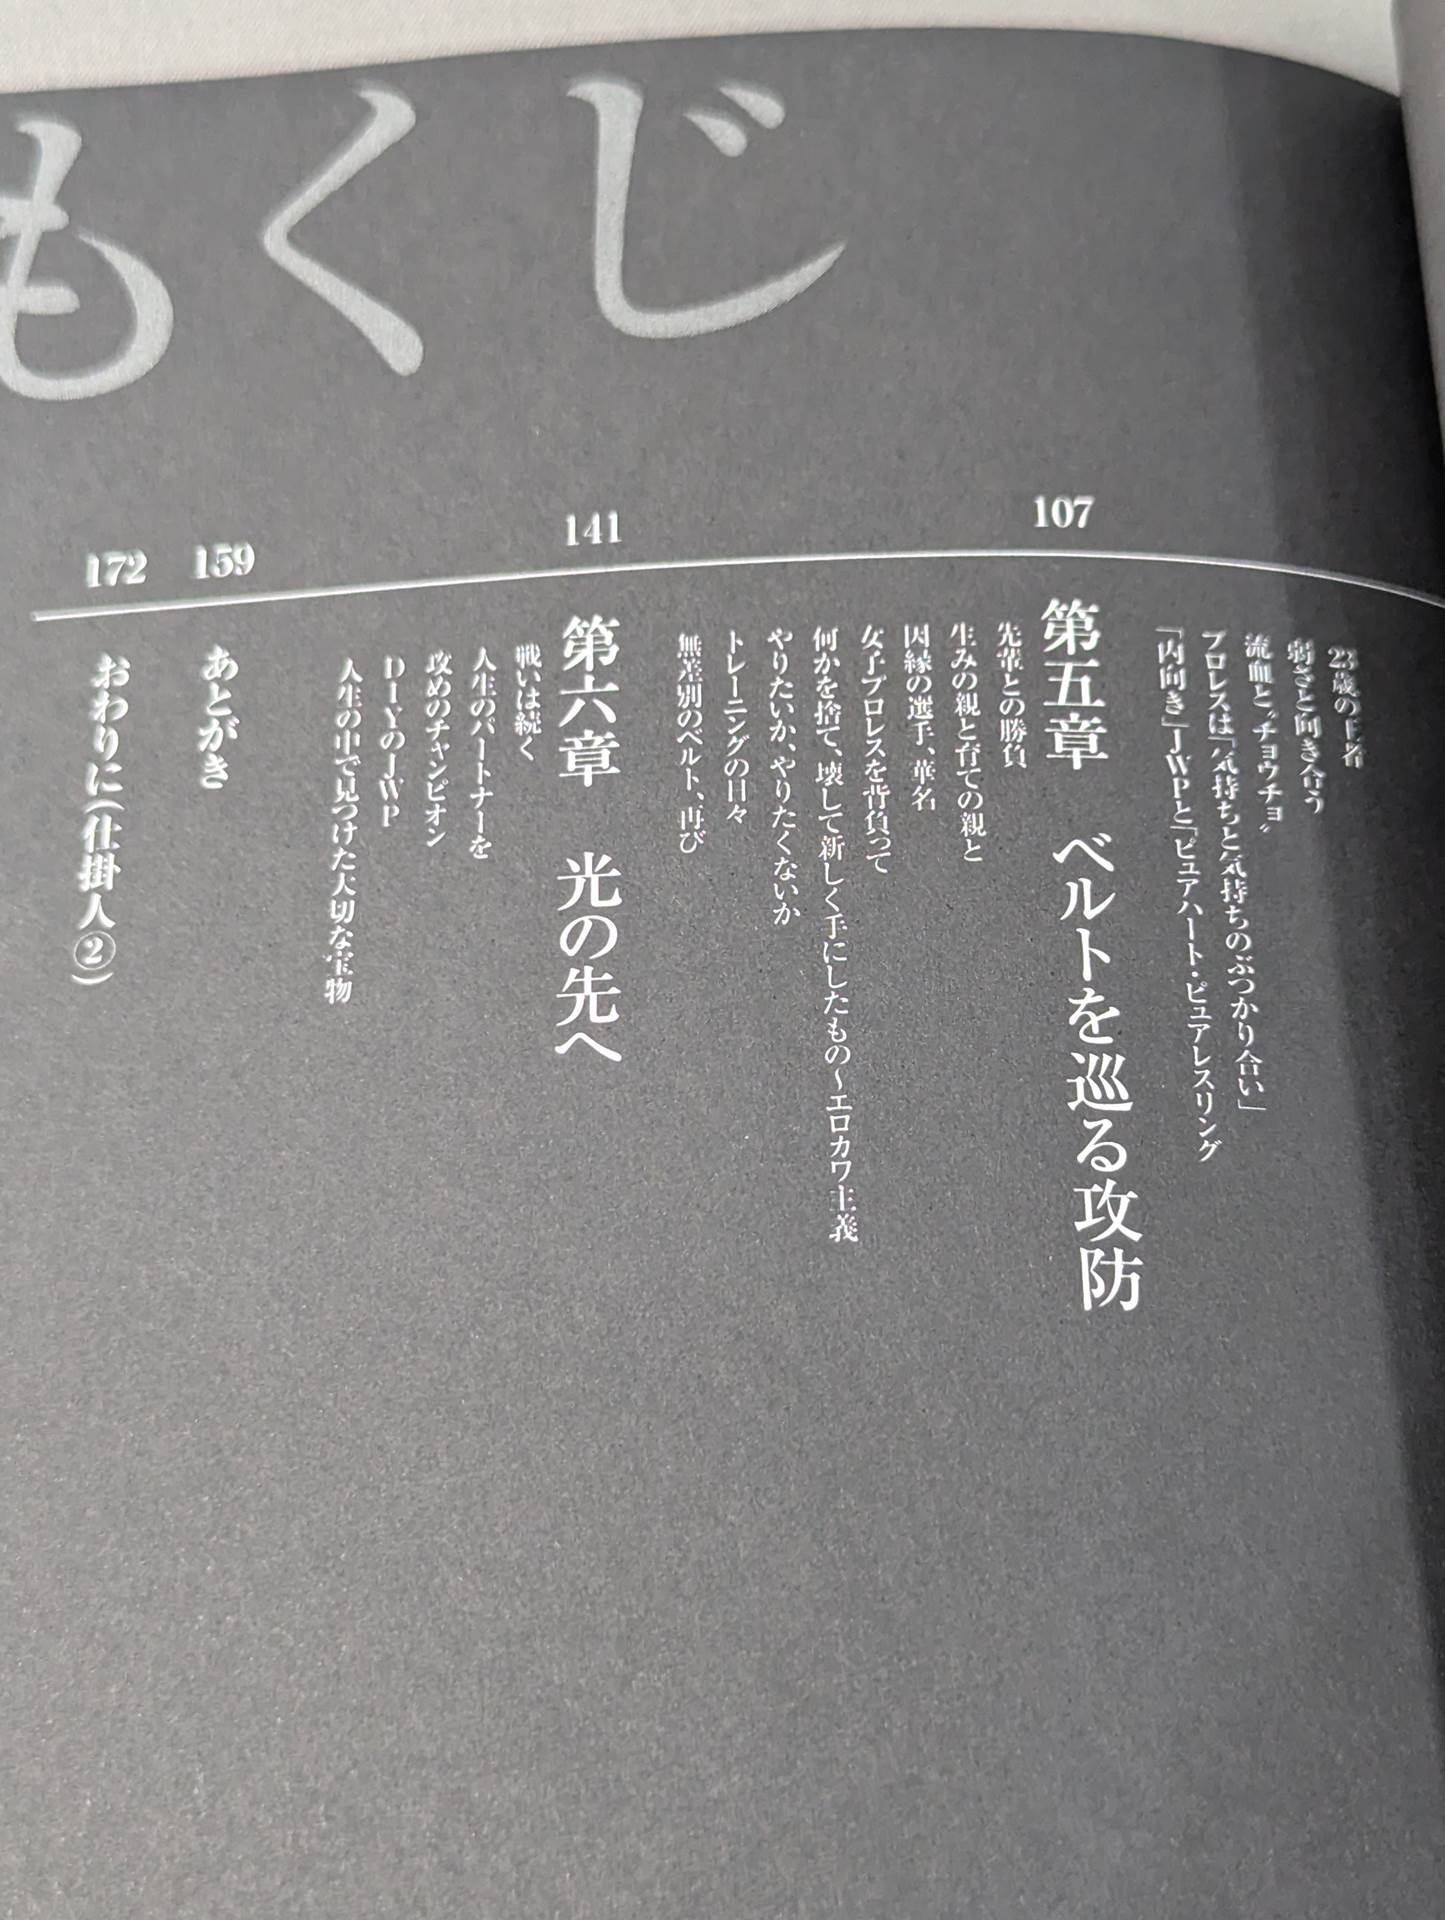 もくじ
23歳の王者
弱さと向き合う
流血と〝チョウチョ〟
プロレスは「気持ちと気持ちのぶつかり合い」
「内向き」JWPと「ピュアハート・ピュアレスリング
107
第五章　ベルトを巡る攻防
先輩との勝負
生みの親と育ての親と
因縁の選手、華名
女子プロレスを背負って
何かを捨て、壊して新しく手にしたもの～エロカワ主義
やりたいか、やりたくないか
トレーニングの日々
無差別のベルト、再び
141
第六章　光の先へ
戦いは続く
人生のパートナーを
攻めのチャンピオン
DIYのJWP
人生の中で見つけた大切な宝物
159
あとがき
172
おわりに（仕掛人②）